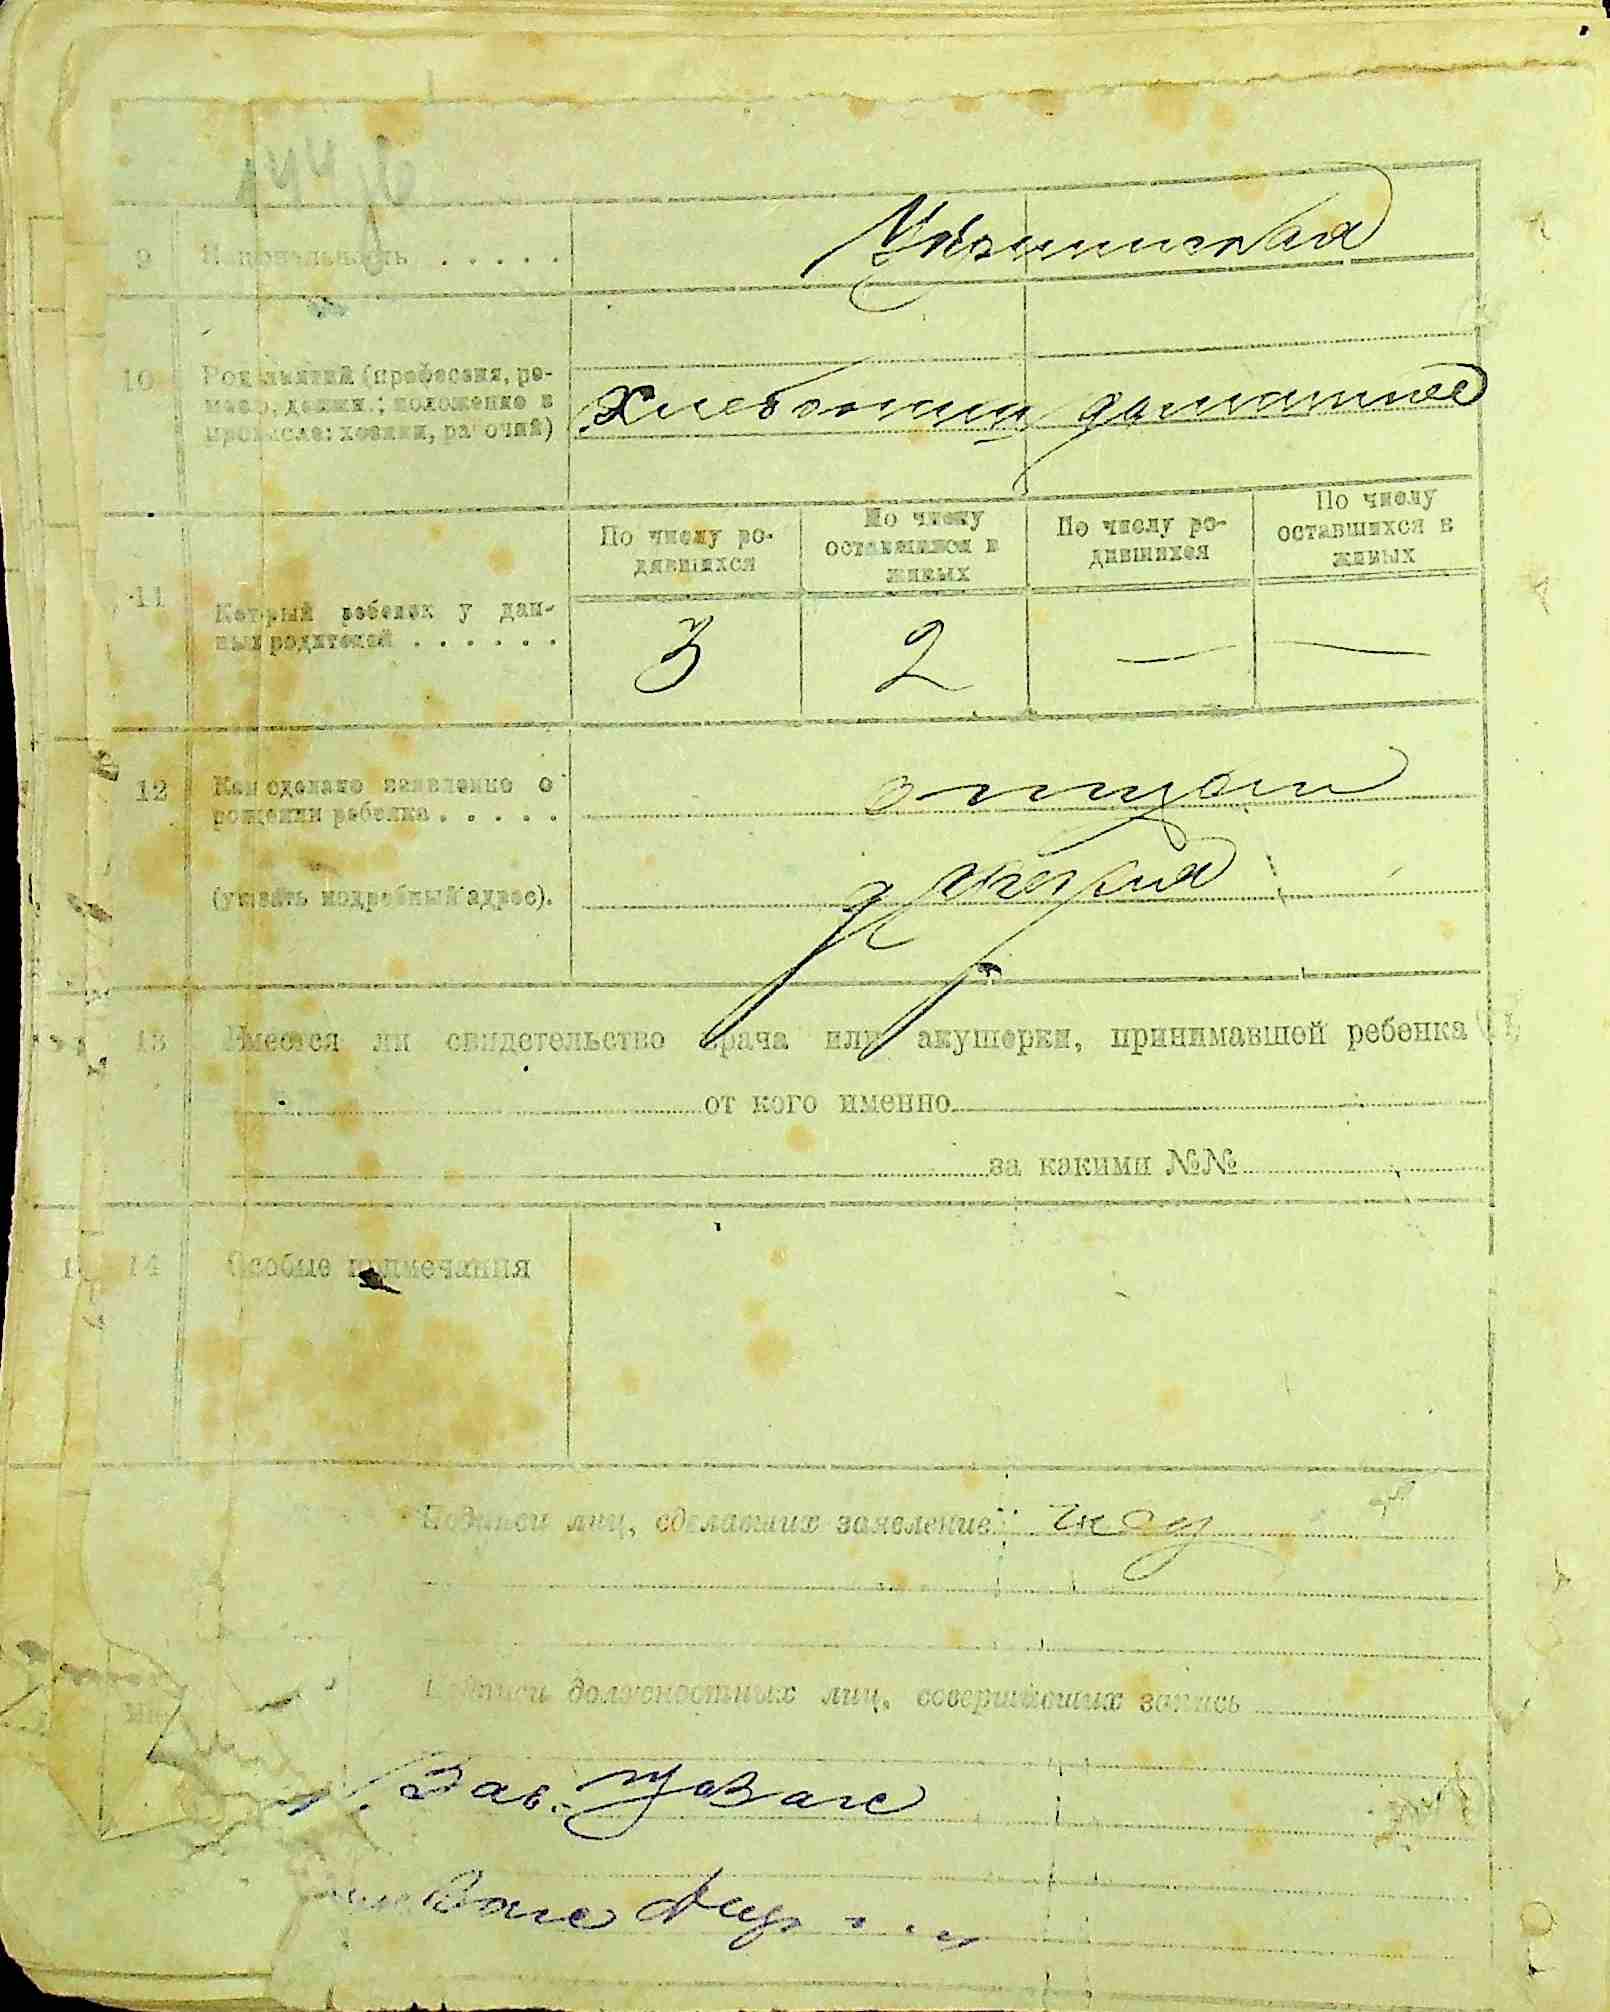 9 Национальность . . . . .
Украинская
10 Род занятий (профессия, ре-
месло, должн.; положение в
промысле: хозяин, рабочий)
Хлебопашец домашнее
По числу ро-
дившихся
По числу
оставшихся в
живых
По числу ро-
дившихся
По числу
оставшихся в
живых
11 Который ребенок у дан-
ных родителей . . . . . .
3 2 — —
12 Кем сделано заявление о
рождении ребенка . . . . .
отцом
(указать подробный адрес).
13 Имеется ли свидетельство врача или акушерки, принимавшей ребенка
от кого именно
за какими №№
14 Особые примечания
Подписи лиц, сделавших заявление:
Подписи должностных лиц, совершивших запись
Зав.